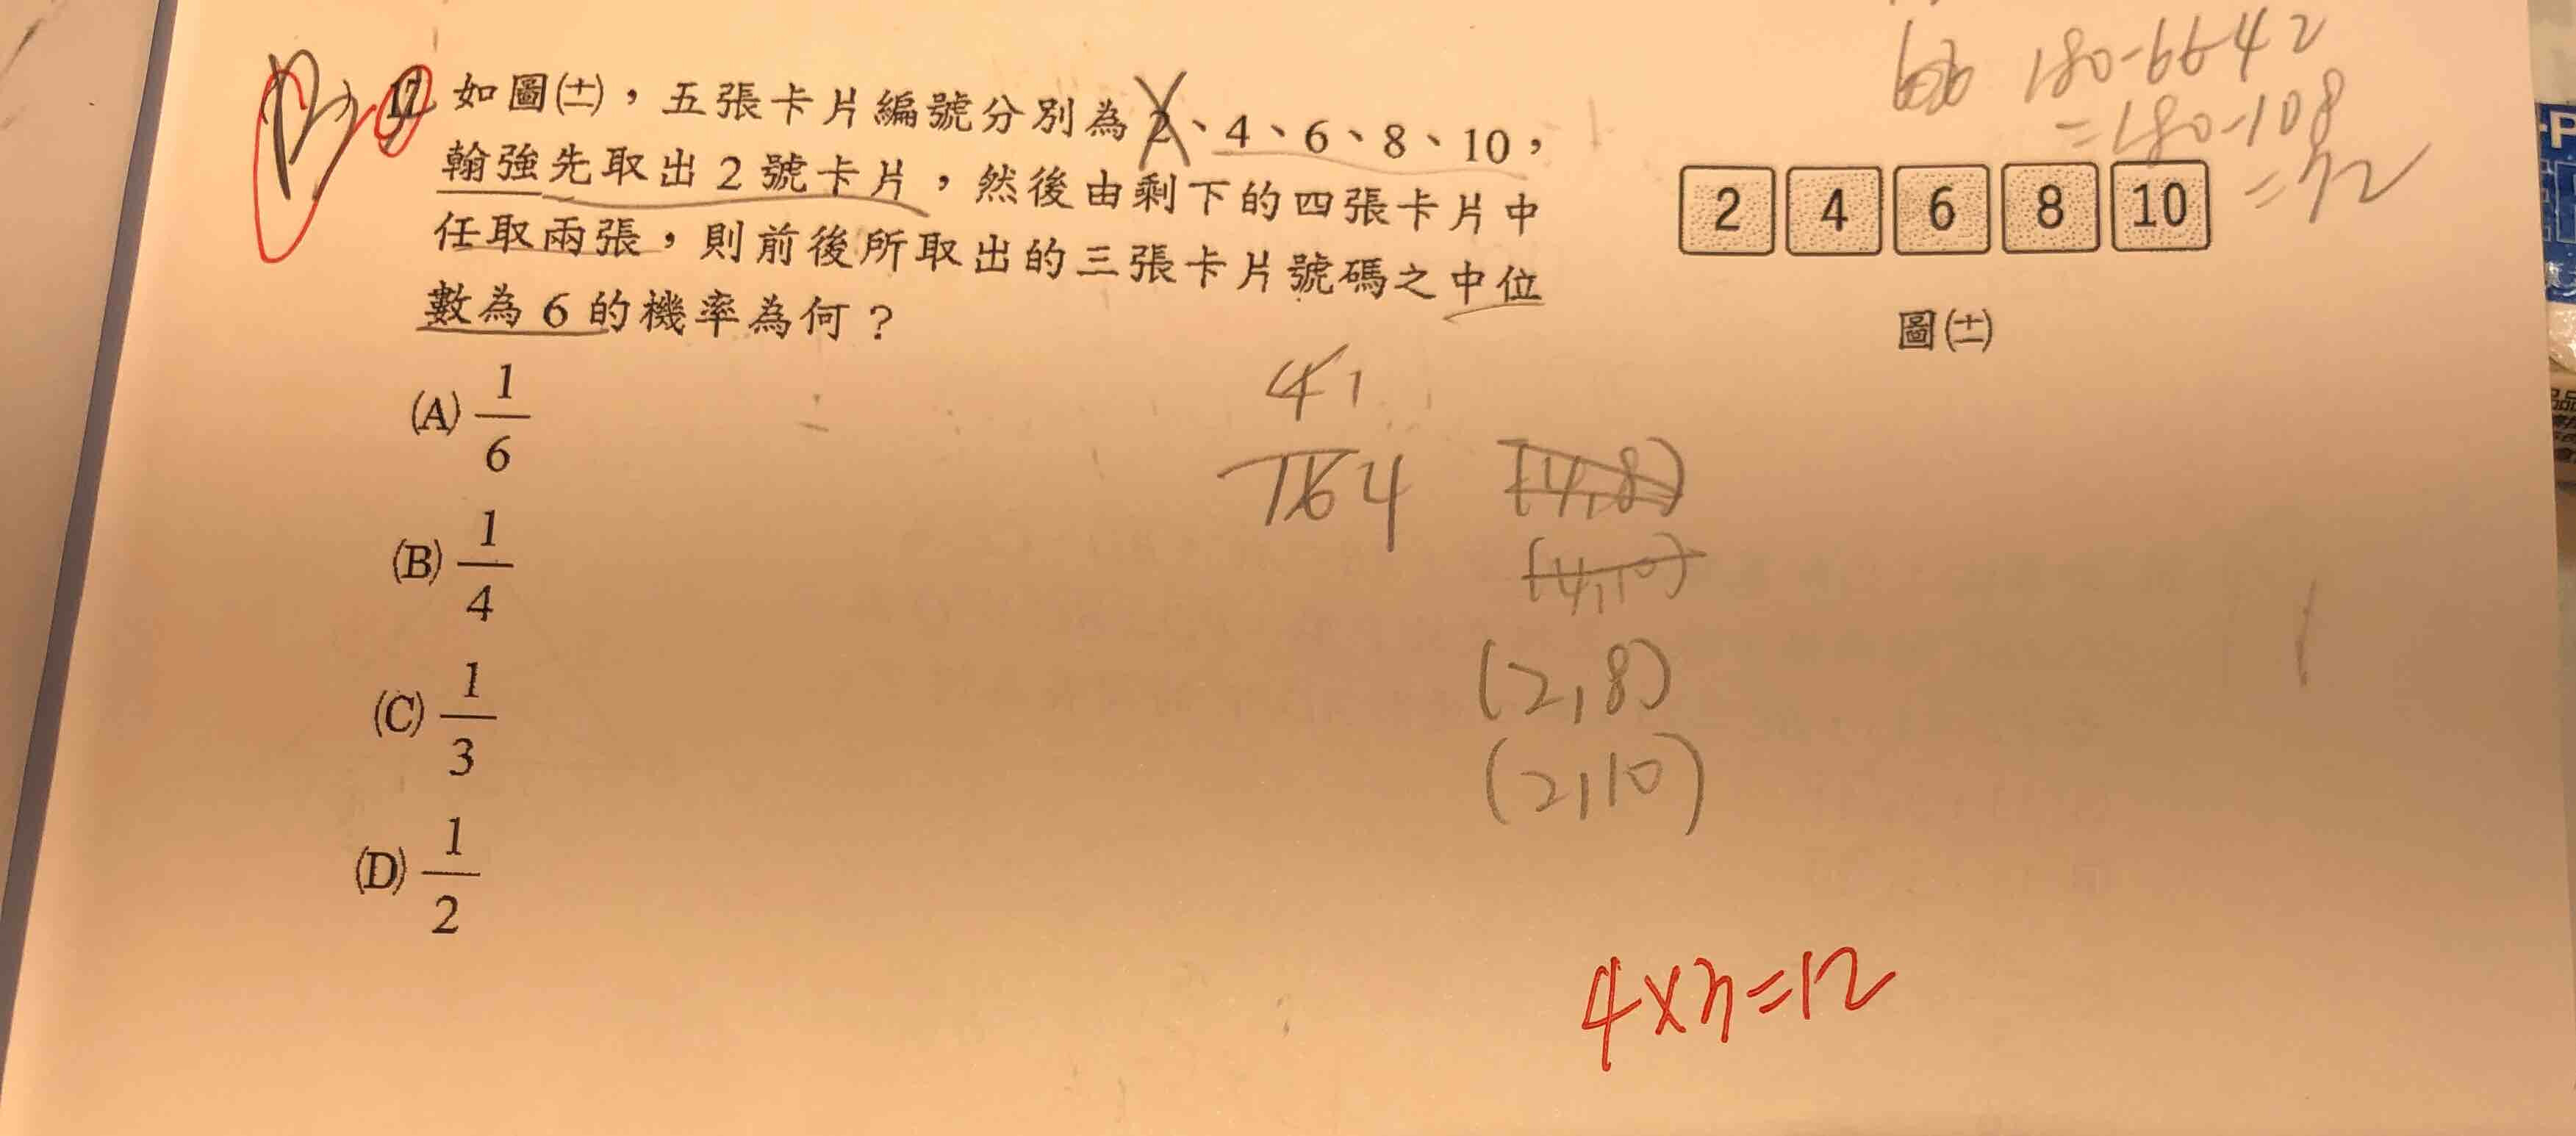 17. 如圖(十一)，五張卡片編號分別為2、4、6、8、10，
翰強先取出2號卡片，然後由剩下的四張卡片中
任取兩張，則前後所取出的三張卡片號碼之中位
數為6的機率為何？
(A) 1/6
(B) 1/4
(C) 1/3
(D) 1/2
2 4 6 8 10
圖(十一)
180-66-42
=180-108
=72
4 1
16 4
(4,8)
(4,10)
(2,8)
(2,10)
4×3=12